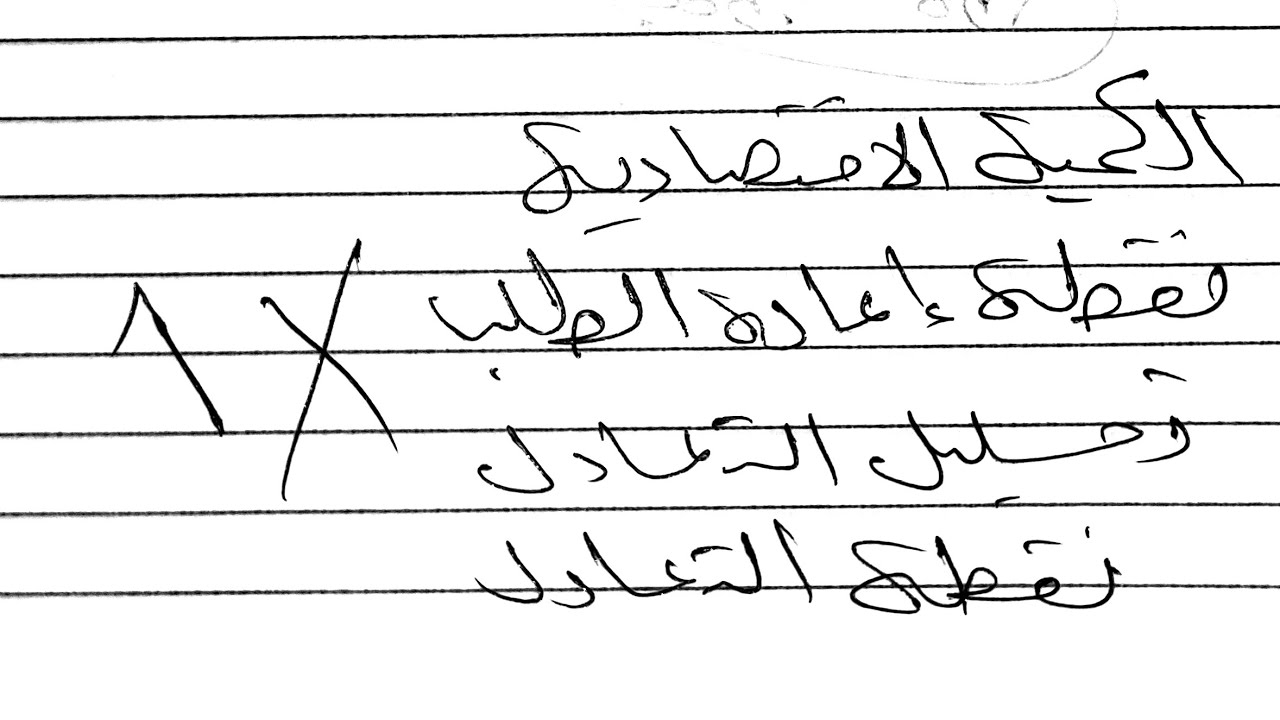 الكمية الاقتصادية
نقطة إعادة الطلب
وتحليل التعادل
نقطة التعادل